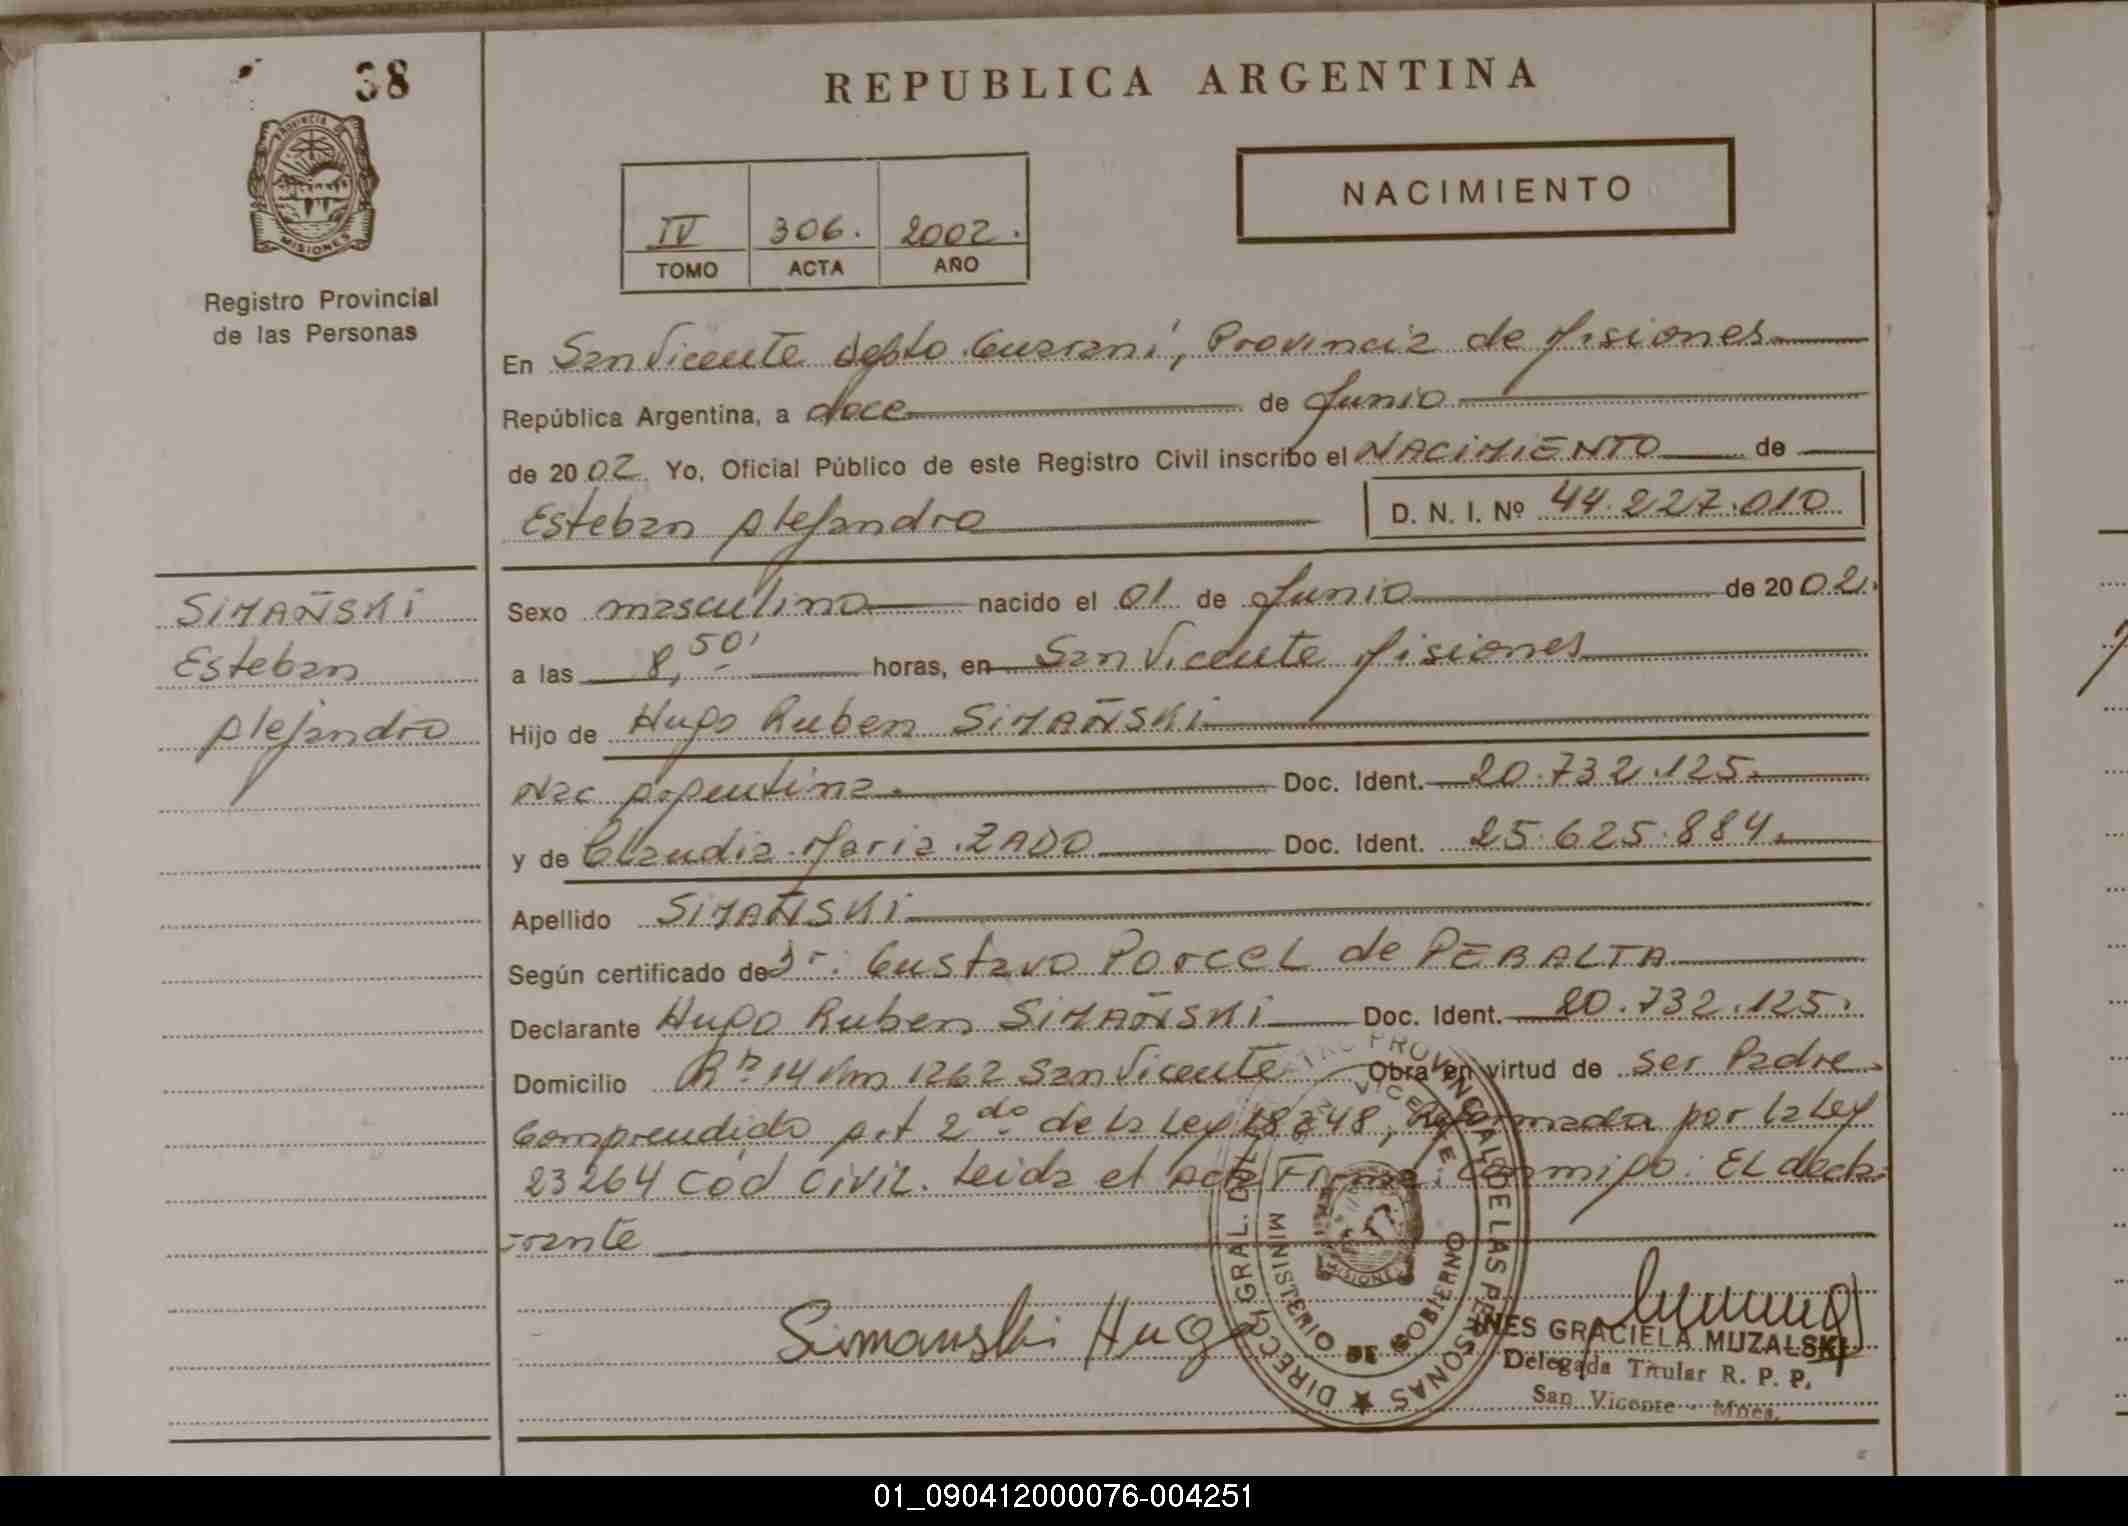 38
PROVINCIA DE
MISIONES
Registro Provincial
de las Personas
SIMAÑSKI
Esteban
Alejandro
REPUBLICA ARGENTINA
NACIMIENTO
IV 306. 2002.
TOMO ACTA AÑO
En San Vicente Depto Guaraní, Provincia de Misiones
República Argentina, a doce de Junio
de 2002 Yo, Oficial Público de este Registro Civil inscribo el NACIMIENTO de
Esteban Alejandro D. N. I. Nº 44.227.010
Sexo masculino nacido el 01 de Junio de 2002.
a las 8,50' horas, en San Vicente Misiones
Hijo de Hugo Ruben SIMAÑSKI
Nac Argentina. Doc. Ident. 20.732.125.
y de Claudia Maria ZADO Doc. Ident. 25.625.884.
Apellido SIMAÑSKI
Según certificado de Dr. Gustavo PORCEL de PERALTA
Declarante Hugo Ruben SIMAÑSKI Doc. Ident. 20.732.125.
Domicilio Rta 14 Km 1262 San Vicente Obra en virtud de ser Padre
Comprendido Art 2do de la Ley 18248, Reformada por la Ley
23264 Cód Civil. Leida el Acta Firma: Conmigo: El decla-
rante
Simanski Hugo
PROVINCIAL DE LAS PERSONAS ★ DIRECC. GRAL. DEL
VICENTE
MINISTERIO DE GOBIERNO
MISIONES
INES GRACIELA MUZALSKI
Delegada Titular R. P. P.
San Vicente - Mnes.
01_090412000076-004251